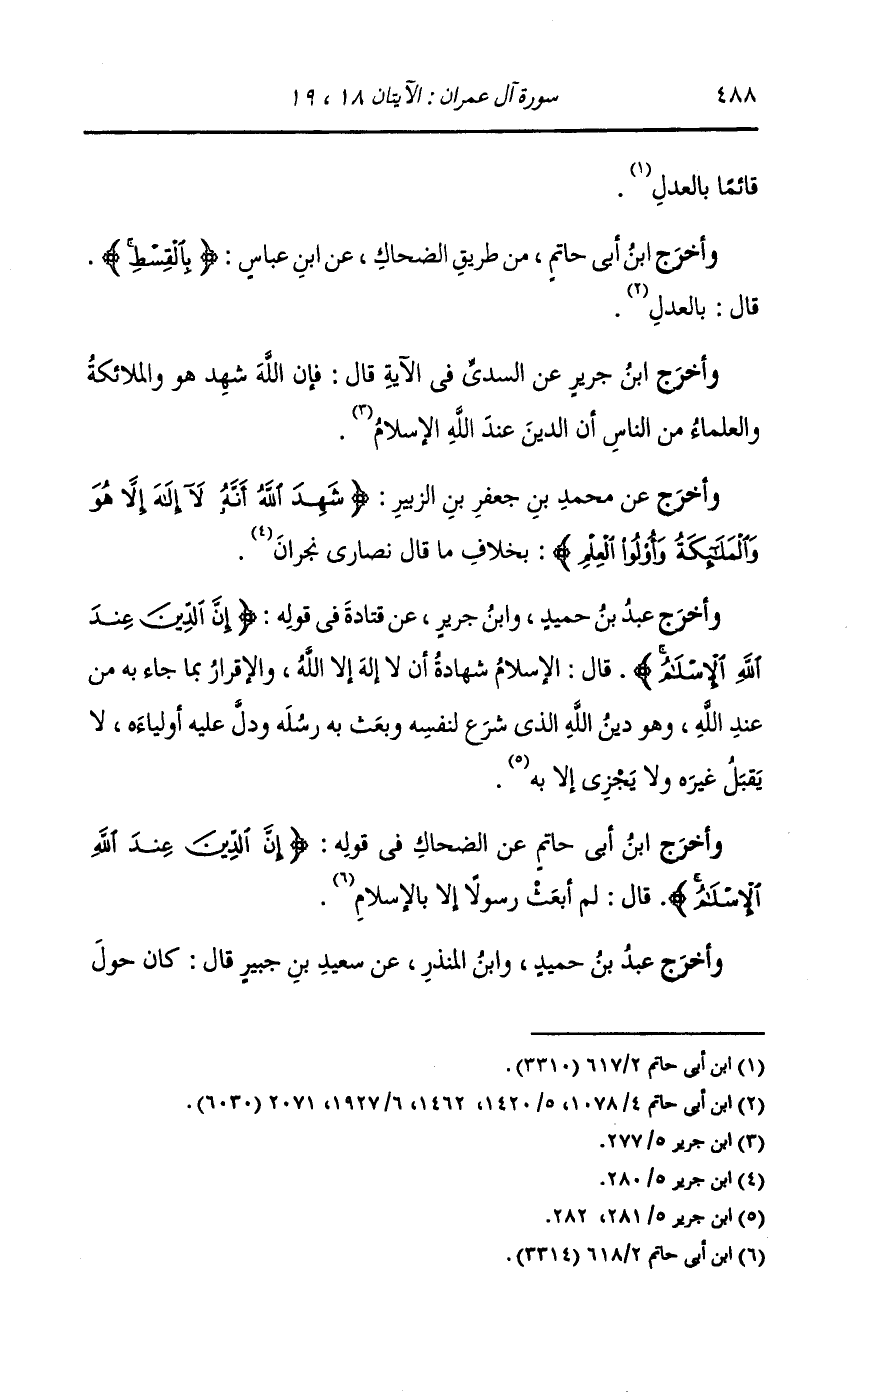 ٤٨٨ سورة آل عمران : الآيتان ١٨ ، ١٩
قائمًا بالعدلِ(١) .
وأخرَج ابنُ أبى حاتمٍ ، من طريقِ الضحاكِ ، عن ابنِ عباسٍ : ﴿ بِٱلْقِسْطِۚ ﴾ .
قال : بالعدلِ(٢) .
وأخرَج ابنُ جريرٍ عن السدىِّ فى الآيةِ قال : فإن اللَّهَ شهِد هو والملائكةُ
والعلماءُ من الناسِ أن الدينَ عندَ اللَّهِ الإسلامُ(٣) .
وأخرَج عن محمدِ بنِ جعفرِ بنِ الزبيرِ : ﴿ شَهِدَ ٱللَّهُ أَنَّهُۥ لَآ إِلَٰهَ إِلَّا هُوَ
وَٱلْمَلَٰٓئِكَةُ وَأُو۟لُوا۟ ٱلْعِلْمِ ﴾ : بخلافِ ما قال نصارى نجرانَ(٤) .
وأخرَج عبدُ بنُ حميدٍ ، وابنُ جريرٍ ، عن قتادةَ فى قولِه : ﴿ إِنَّ ٱلدِّينَ عِندَ
ٱللَّهِ ٱلْإِسْلَٰمُۗ ﴾ . قال : الإسلامُ شهادةُ أن لا إلهَ إلا اللَّهُ ، والإقرارُ بما جاء به من
عندِ اللَّهِ ، وهو دينُ اللَّهِ الذى شرَع لنفسِه وبعَث به رسُلَه ودلَّ عليه أولياءَه ، لا
يَقبَلُ غيرَه ولا يَجْزِى إلا به(٥) .
وأخرَج ابنُ أبى حاتمٍ عن الضحاكِ فى قولِه : ﴿ إِنَّ ٱلدِّينَ عِندَ ٱللَّهِ
ٱلْإِسْلَٰمُۗ ﴾. قال : لم أبعَثْ رسولًا إلا بالإسلامِ(٦) .
وأخرَج عبدُ بنُ حميدٍ ، وابنُ المنذرِ ، عن سعيدِ بنِ جبيرٍ قال : كان حولَ
(١) ابن أبى حاتم ٦١٧/٢ (٣٣١٠).
(٢) ابن أبى حاتم ١٠٧٨/٤، ١٤٢٠/٥، ١٤٦٢، ١٩٢٧/٦، ٢٠٧١ (٦٠٣٠).
(٣) ابن جرير ٢٧٧/٥.
(٤) ابن جرير ٢٨٠/٥.
(٥) ابن جرير ٢٨١/٥، ٢٨٢.
(٦) ابن أبى حاتم ٦١٨/٢ (٣٣١٤).